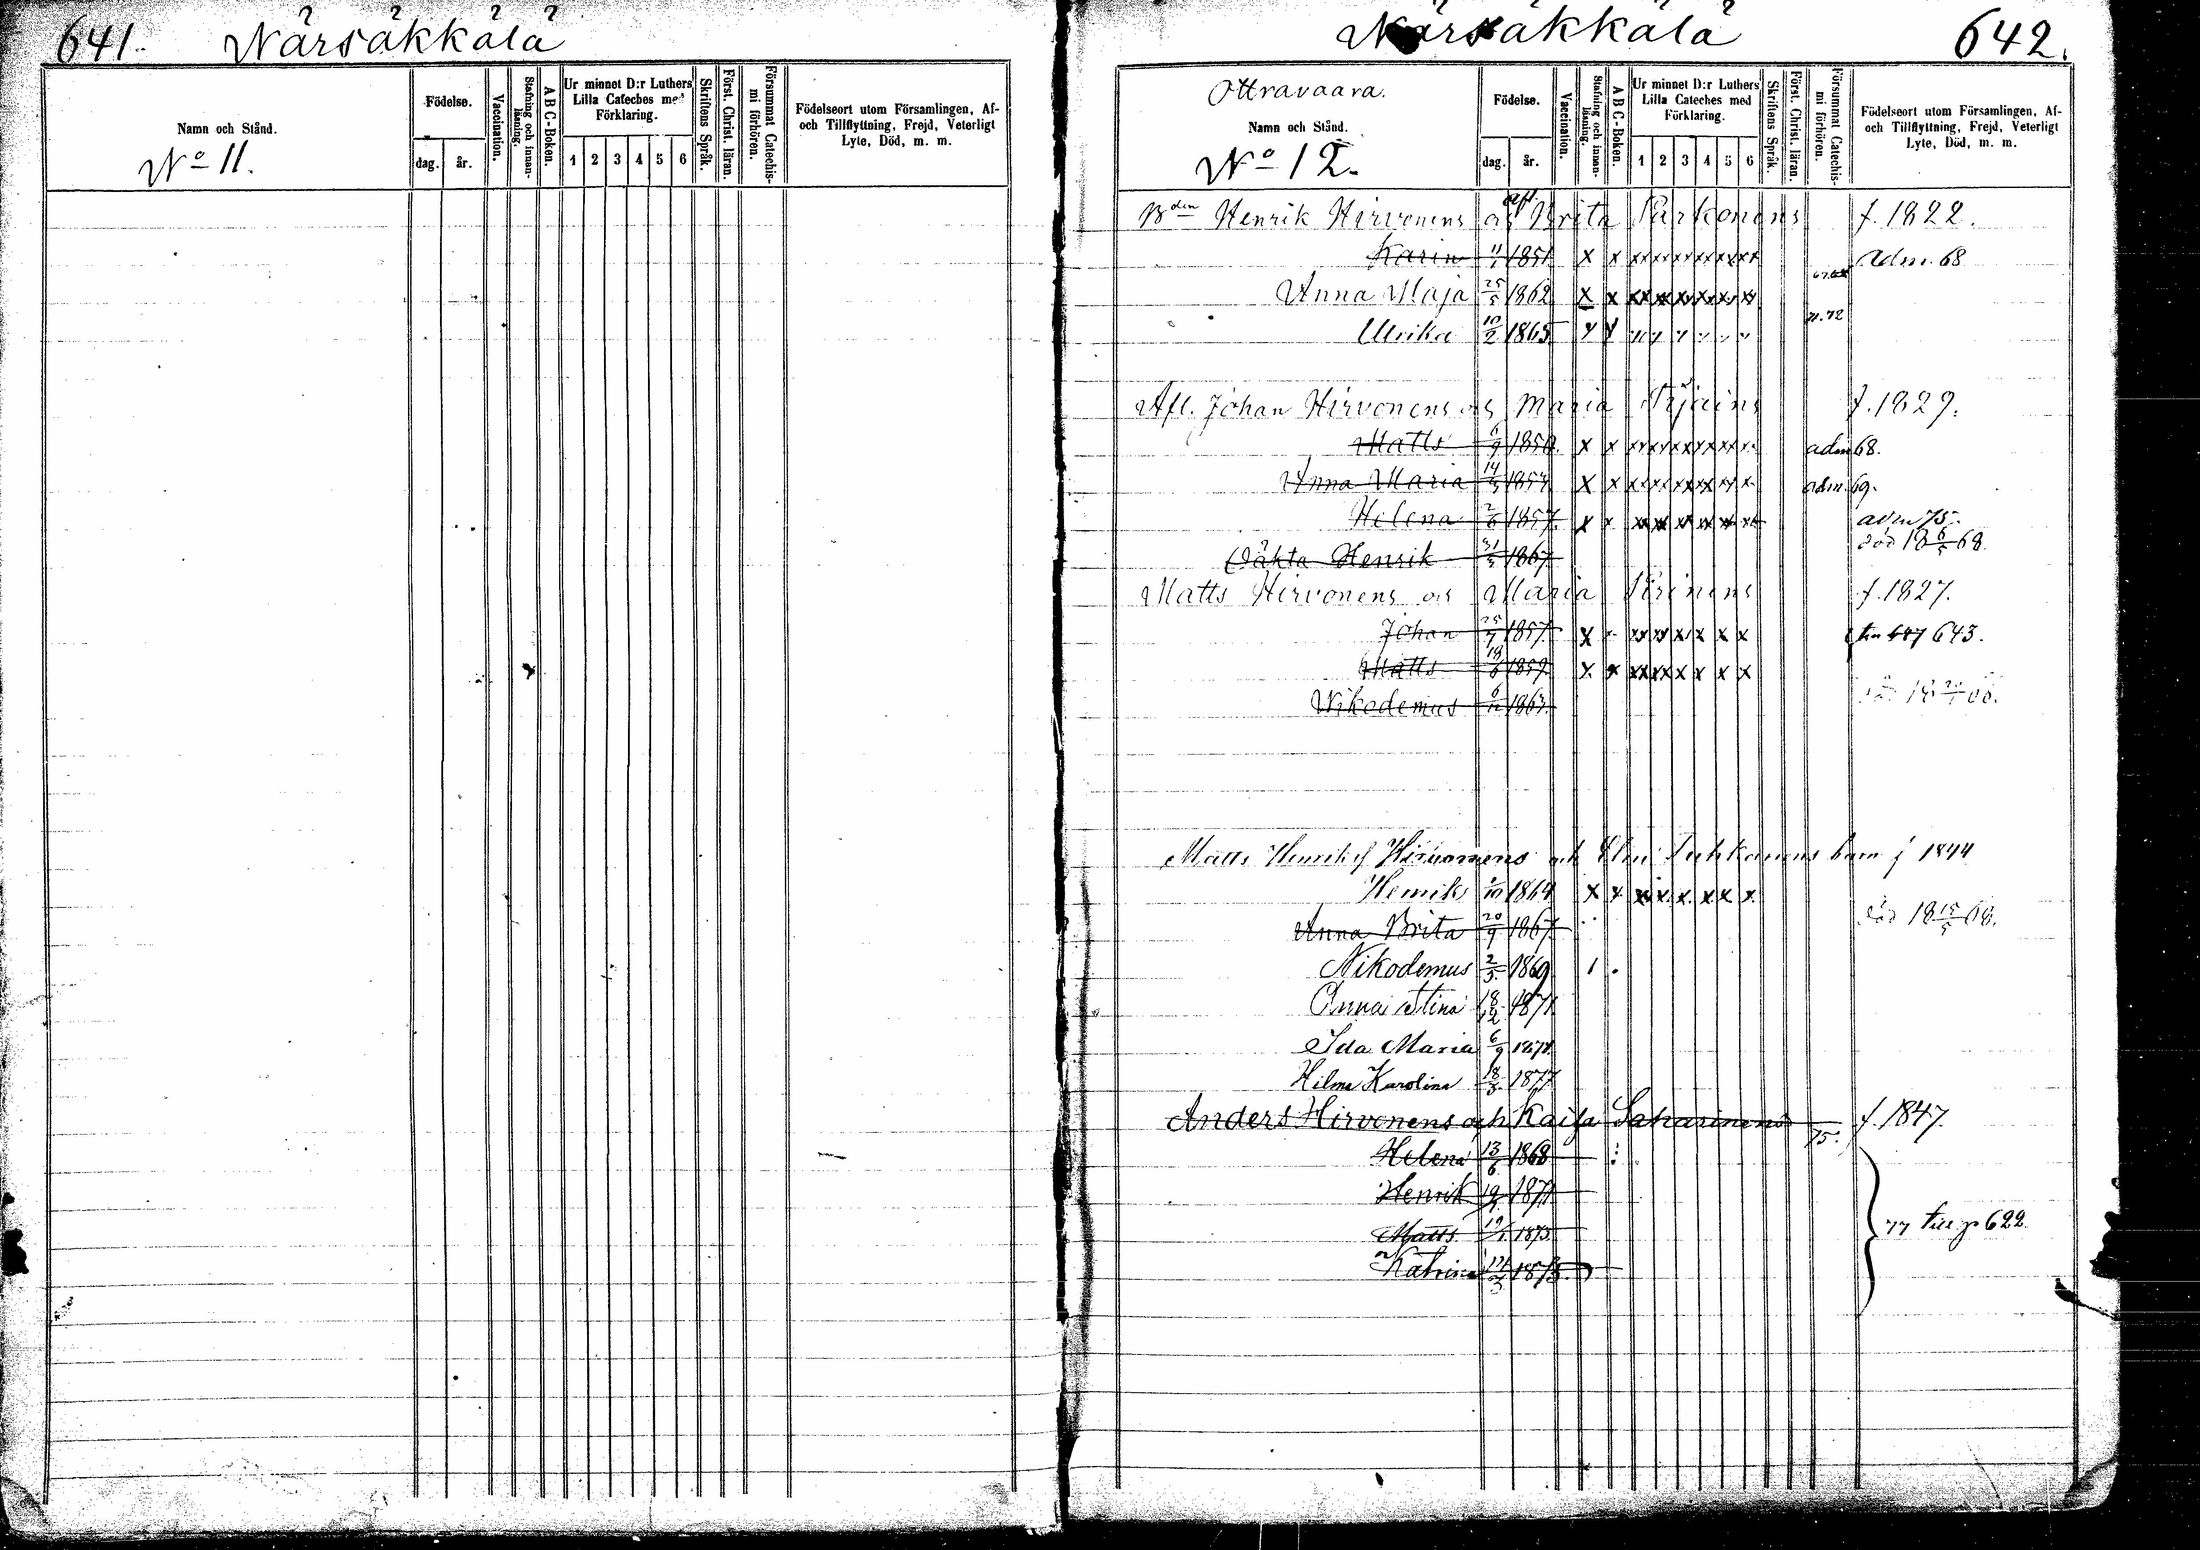 641. Närsäkkälä
Namn och Stånd.
No 11.
Födelse.
dag. år.
Vaccination.
Stafning och innan-läsning.
A B C-Boken.
Ur minnet D:r Luthers
Lilla Cateches med
Förklaring.
1 2 3 4 5 6
Skriftens Språk.
Först. Christ. läran.
Försummat Catechis-mi förhören.
Födelseort utom Församlingen, Af-
och Tillflyttning, Frejd, Veterligt
Lyte, Död, m. m.
Närsäkkälä 642.
Ottravaara.
Namn och Stånd.
No 12.
Födelse.
dag. år.
Vaccination.
Stafning och innan-läsning.
A B C-Boken.
Ur minnet D:r Luthers
Lilla Cateches med
Förklaring.
1 2 3 4 5 6
Skriftens Språk.
Först. Christ. läran.
Försummat Catechis-mi förhören.
Födelseort utom Församlingen, Af-
och Tillflyttning, Frejd, Veterligt
Lyte, Död, m. m.
afl.
Bden Henrik Hirvonens o Brita Parkonens f. 1822.
Karin 1851 x x adm. 68
Anna Maja 25/5 1862 x x
Ulrika 10/2 1865 71.72
Afl. Johan Hirvonens o Maria f. 1829.
Matts 6/9 1850. x x adm 68.
Anna Maria 14 x x adm. 69.
Helena 2/6 1857. x x adm 75.
Oäkta Henrik 31 1867 död 18 6/5 68.
Matts Hirvonens o Maria f. 1827.
Johan 25 1857 x 643.
Matts 18/6 1859. x x
Nikodemus 6 1863.
Matts Henriks Hirvonens och Elin Tuhkanens barn f 1844
Henrik 1864 x x x x x x x x
Anna Brita 20/9 1867 död 18 15/5 68.
Nikodemus 2/3 1869
Anna Stina 18/12 1871
Ida Maria 6/9 1874
Hilma Karolina 18/3 1877
Anders Hirvonens och Kaisa Saharinens 75. f. 1847.
Helena 13/6 1868
Henrik 19 1871
Matts 19 1873
Katrina 1875
77 till p 622.